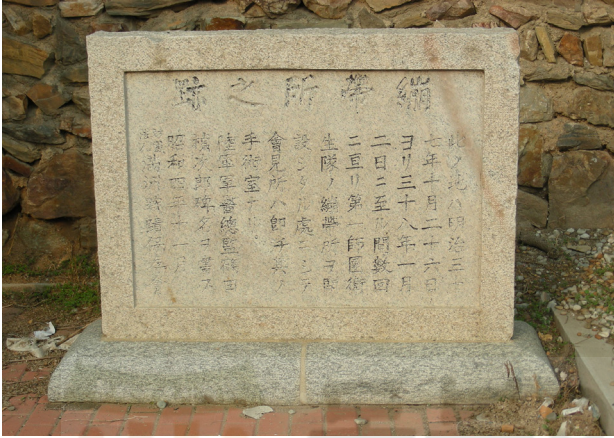 繃帶所之跡
此ノ地ハ明治三十
七年十月二十六日
ヨリ三十八年一月
二日ニ至ル間數回
ニ亘リ第一師團衛
生隊ノ繃帶所ヲ開
設シタル處ニシテ
會見所ハ即チ其ノ
手術室ナリ
陸軍軍醫總監
禎次郎碑名ヲ書ス
昭和四年十一月
滿洲戰蹟保存會